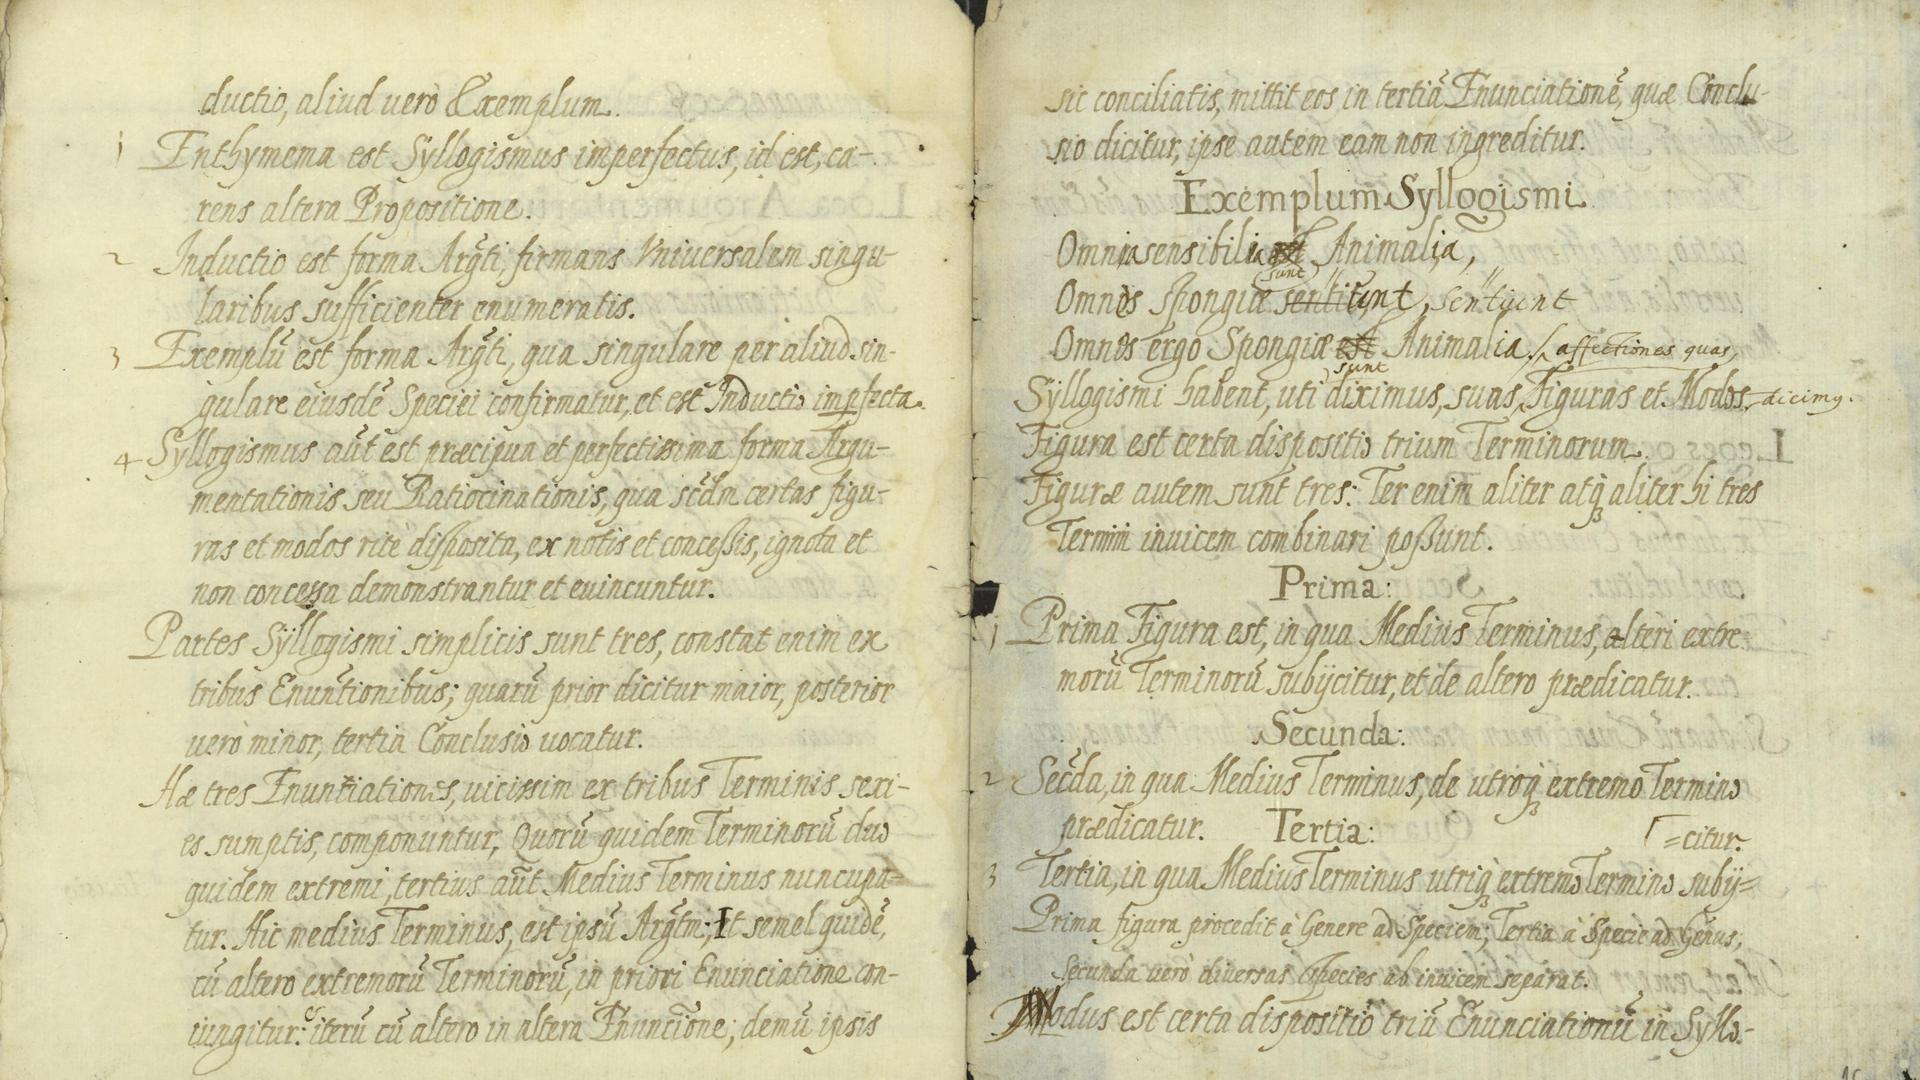 ductio, aliud verò Exemplum.
1 Enthymema est Syllogismus imperfectus, id est, ca-
rens altera Propositione.
2 Inductio est forma Argti, firmans Vniversalem singu-
laribus sufficienter enumeratis.
3 Exemplū est forma Argti, qua singulare per aliud sin-
gulare eiusdē Speciei confirmatur, et est Inductio imperfecta.
4 Syllogismus aūt est præcipua et perfectissima forma Argu-
mentationis seu Ratiocinationis, qua scdm certas figu-
ras et modos ritè disposita, ex notis et concessis, ignota et
non concessa demonstrantur et euincuntur.
Partes Syllogismi simplicis sunt tres, constat enim ex
tribus Enuntionibus; quarū prior dicitur maior, posterior
verò minor, tertia Conclusio vocatur.
Hæ tres Enuntiationes, vicissim ex tribus Terminis sexi-
es sumptis, componuntur, Quorū quidem Terminorū duo
quidem extremi, tertius aūt Medius Terminus nuncupa-
tur. Hic medius Terminus, est ipsū Argtm; It semel quidē,
cū altero extremorū Terminorū, in priori Enunciatione con-
iungitur: iterū cū altero in altera Enuncione; demū ipsis
sic conciliatis, mittit eos in tertiā Enunciationē, quæ Conclu-
sio dicitur, ipse autem eam non ingreditur.
Exemplum Syllogismi
Omnia sensibilia est Animalia,
sunt
Omnes spongiæ sentiunt, sentiunt
Omnes ergo Spongiæ est Animalia. affectiones quas,
sunt
Syllogismi habent, uti diximus, suas Figuras et Modos. dicimus.
Figura est certa dispositio trium Terminorum.
Figuræ autem sunt tres: Ter enim aliter atq3 aliter hi tres
Termini invicem combinari poßunt.
Prima:
1 Prima Figura est, in qua Medius Terminus, alteri extre
morū Terminorū subijcitur, et de altero prædicatur.
Secunda:
2 Secda, in qua Medius Terminus, de utroq3 extremo Termino
prædicatur. Tertia: =citur.
3 Tertia, in qua Medius Terminus utriq3 extremo Termino subij=
Prima figura procedit à Genere ad Speciem; Tertia à Specie ad Genus,
Secunda verò diversas Species ab invicem separat.
Modus est certa dispositio triū Enunciationū in Syllo-